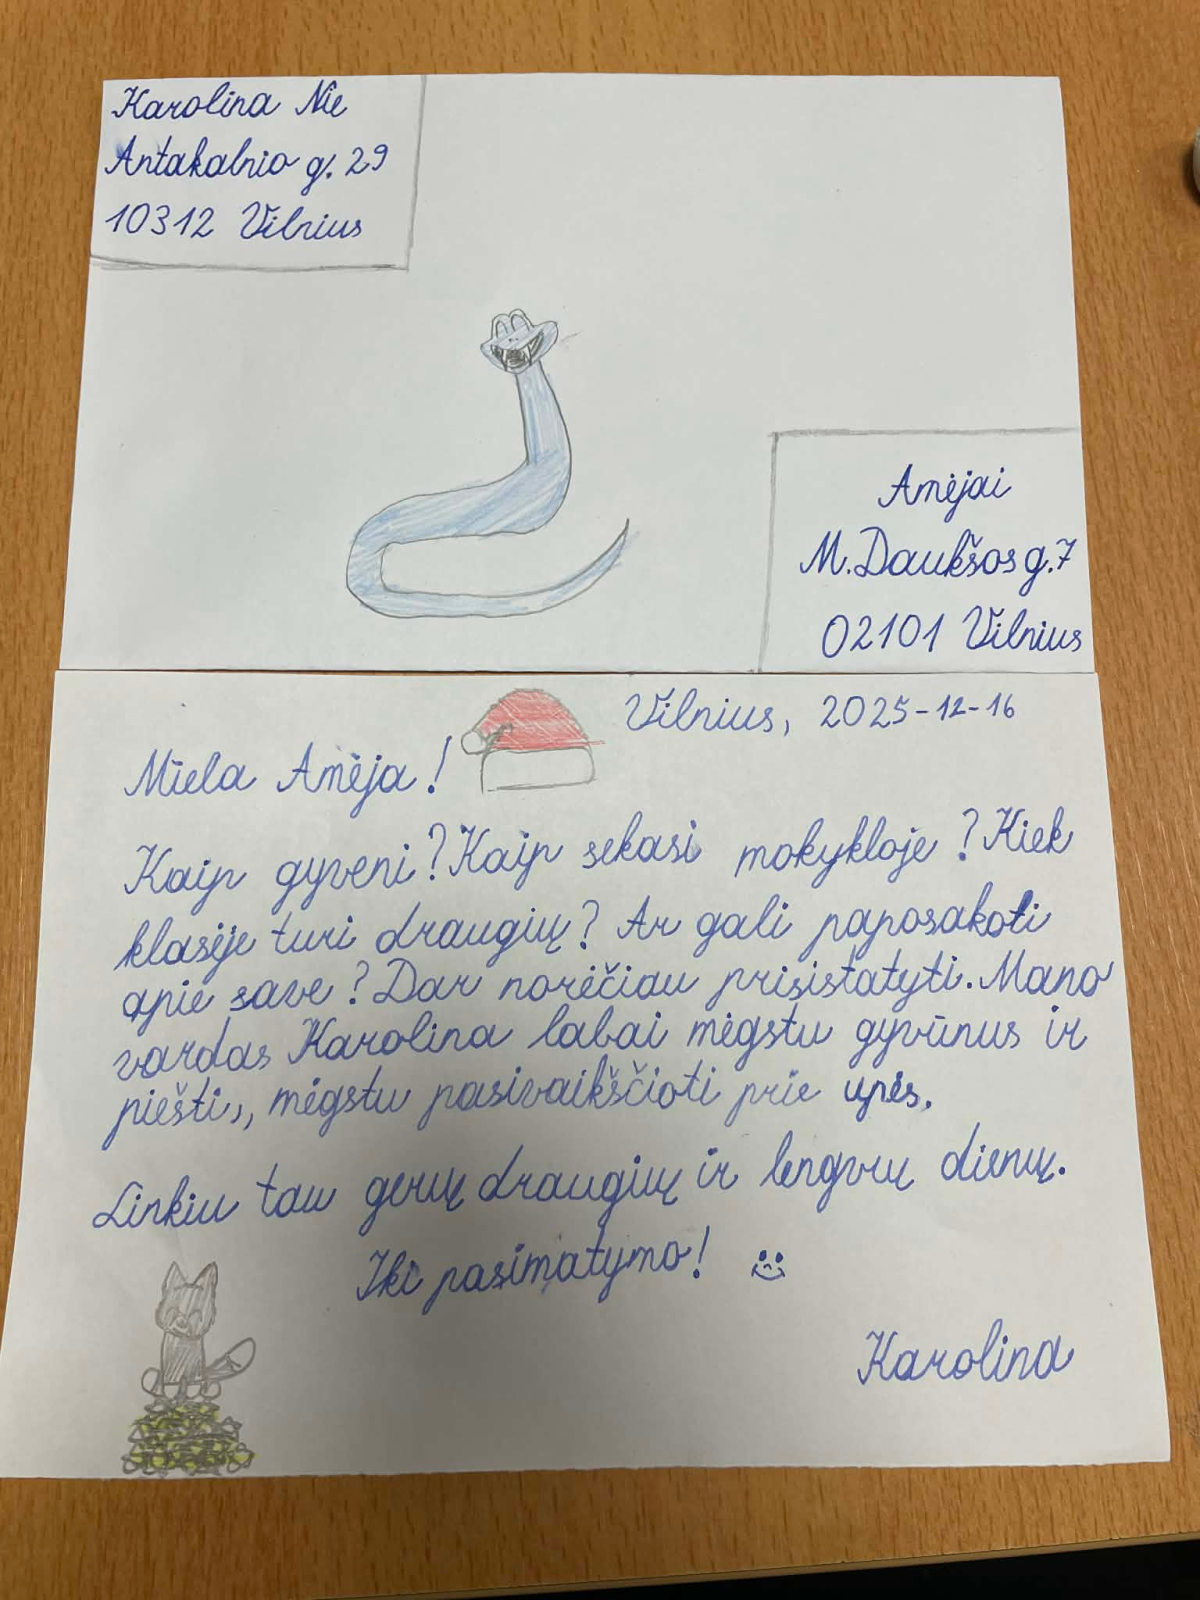 Karolina Nie
Antakalnio g. 29
10312 Vilnius
Amėjai
M. Daukšos g. 7
02101 Vilnius
Vilnius, 2025-12-16
Miela Amėja!
Kaip gyveni? Kaip sekasi mokykloje? Kiek
klasėje turi draugių? Ar gali paposakoti
apie save? Dar norėčiau prisistatyti. Mano
vardas Karolina labai mėgstu gyvūnus ir
piešti,, mėgstu pasivaikščioti prie upės.
Linkiu tau gerų draugių ir lengvų dienų.
Iki pasimatymo!
Karolina